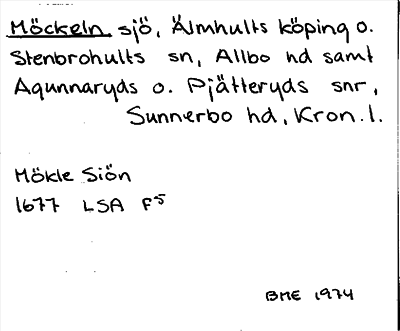 Möckeln, sjö, Älmhults köping o.
Stenbrohults sn, Allbo hd samt
Agunnaryds o. Pjätteryds snr,
Sunnerbo hd, Kron. l.
Mökle Siön
1677 LSA F5
BME 1974